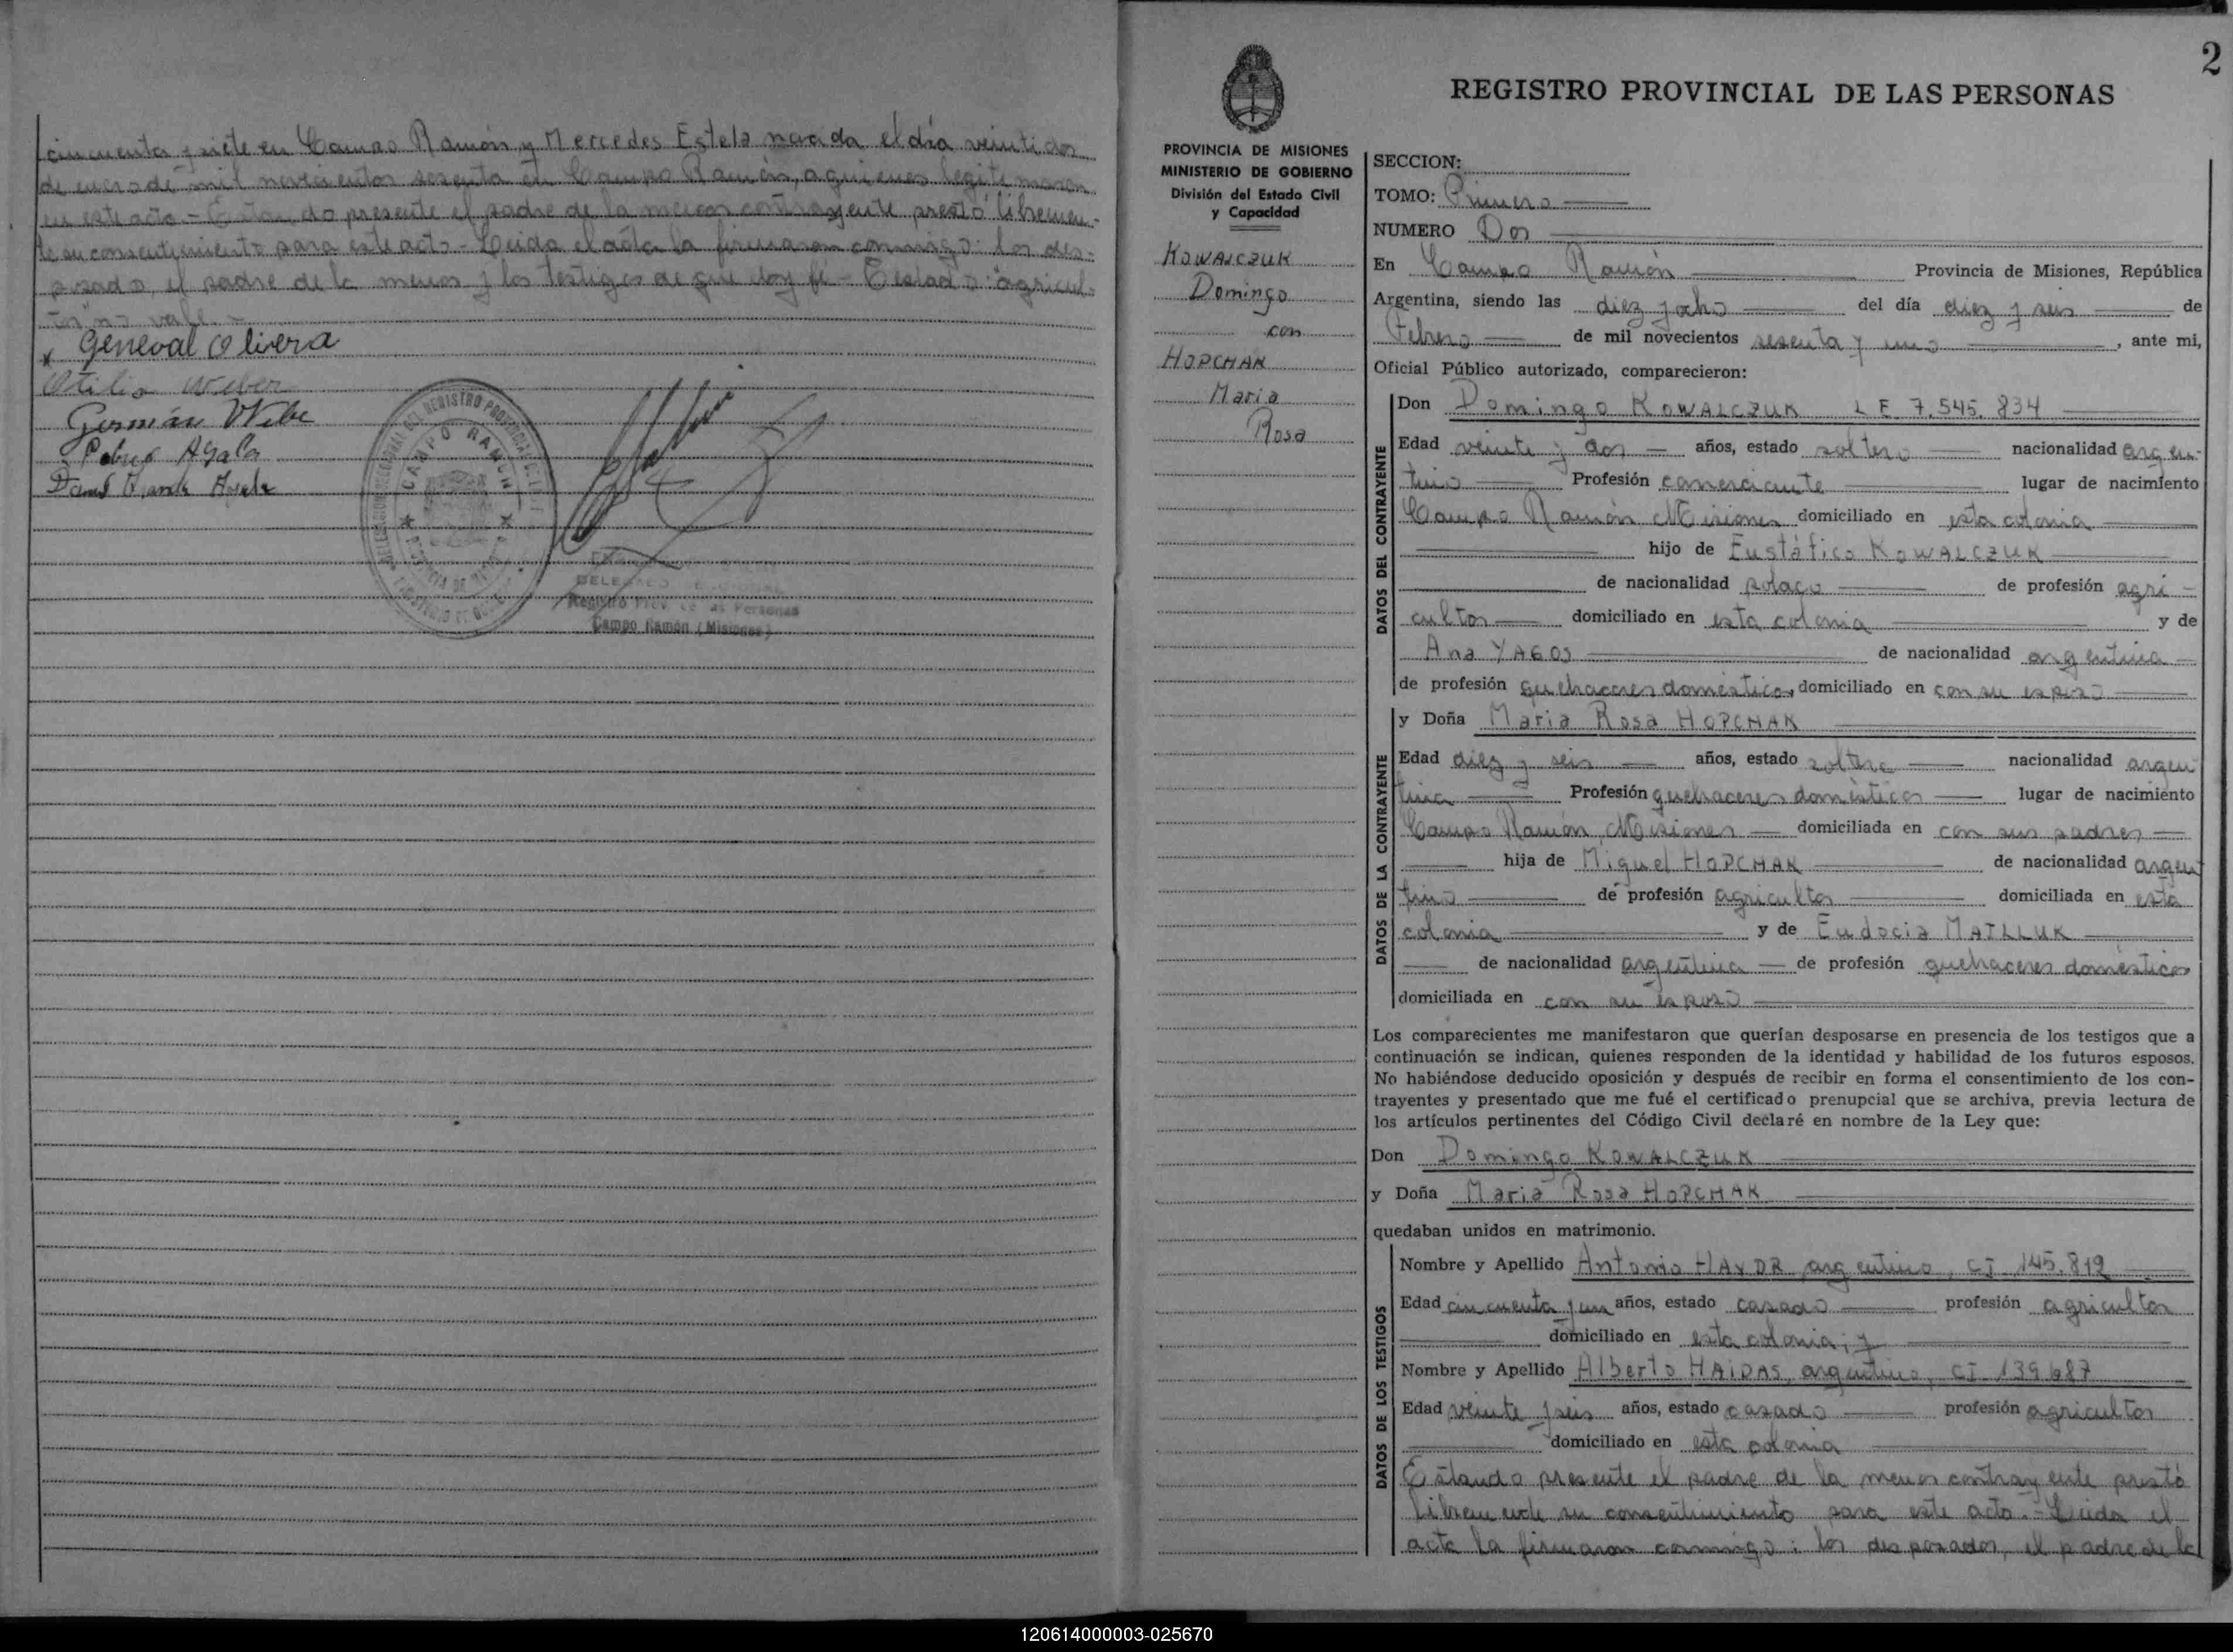 cincuenta y siete en Campo Ramón y Mercedes Estela nacida el día veintidos
de enero de mil novecientos sesenta en Campo Ramón, a quienes legitimaron
en este acto.- Estando presente el padre de la menor contrayente prestó libremen-
te su consentimiento para este acto.- Leída el acta la firmaron conmigo: los des-
posados, el padre de la menor y los testigos de que doy fé.- Testado: "agricul-
tor" no vale.-
Geneval Olivera
Otilia Weber
Germán Webe
Pedro Ayala
Ayala
CAMPO RAMON
Registro Prov. de las Personas
Campo Ramón (Misiones)
2
REGISTRO PROVINCIAL DE LAS PERSONAS
PROVINCIA DE MISIONES
MINISTERIO DE GOBIERNO
División del Estado Civil
y Capacidad
KOWALCZUK
Domingo
con
HOPCHAK
Maria
Rosa
SECCION:
TOMO: Primero
NUMERO Dos
En Campo Ramón Provincia de Misiones, República
Argentina, siendo las diez y ocho del día diez y seis de
Febrero de mil novecientos sesenta y uno, ante mi,
Oficial Público autorizado, comparecieron:
DATOS DEL CONTRAYENTE
Don Domingo KOWALCZUK L E 7.545.834
Edad veinte y dos años, estado soltero nacionalidad argen-
tino Profesión comerciante lugar de nacimiento
Campo Ramón Misiones domiciliado en esta colonia
hijo de Eustáfico KOWALCZUK
de nacionalidad polaco de profesión agri-
cultor domiciliado en esta colonia y de
Ana YAGOS de nacionalidad argentina
de profesión quehaceres domésticos domiciliado en con su esposo
DATOS DE LA CONTRAYENTE
y Doña Maria Rosa HOPCHAK
Edad diez y seis años, estado soltera nacionalidad argen
tina Profesión quehaceres domésticos lugar de nacimiento
Campo Ramón, Misiones domiciliada en con sus padres
hija de Miguel HOPCHAK de nacionalidad argen
tino de profesión agricultor domiciliada en esta
colonia y de Eudocia MATLLUK
de nacionalidad argentina de profesión quehaceres domésticos
domiciliada en con su esposo
Los comparecientes me manifestaron que querían desposarse en presencia de los testigos que a
continuación se indican, quienes responden de la identidad y habilidad de los futuros esposos.
No habiéndose deducido oposición y después de recibir en forma el consentimiento de los con-
trayentes y presentado que me fué el certificado prenupcial que se archiva, previa lectura de
los artículos pertinentes del Código Civil declaré en nombre de la Ley que:
Don Domingo KOWALCZUK
y Doña Maria Rosa HOPCHAK
quedaban unidos en matrimonio.
DATOS DE LOS TESTIGOS
Nombre y Apellido Antonio HAYDR argentino, CI 145.812
Edad cincuenta y un años, estado casado profesión agricultor
domiciliado en esta colonia; y
Nombre y Apellido Alberto HAIDAS, argentino, CI 139687
Edad veinte y seis años, estado casado profesión agricultor
domiciliado en esta colonia
Estando presente el padre de la menor contrayente prestó
libremente su consentimiento para este acto.- Leída el
acta la firmaron conmigo: los desposados, el padre de la
120614000003-025670